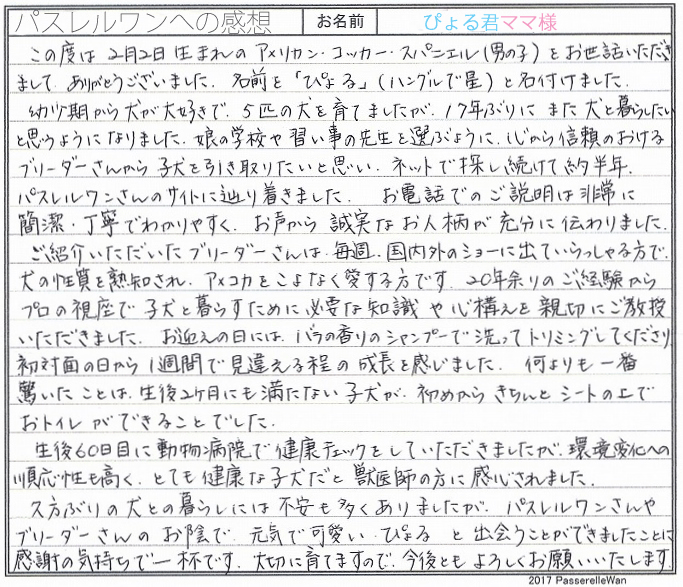 パスレルワンへの感想 お名前 ぴょる君ママ様
この度は 2月2日 生まれの アメリカン・コッカー・スパニエル(男の子)をお世話いただき
まして、ありがとうございました。名前を「ぴょる」(ハングルで星)と名付けました。
幼少期から犬が大好きで、5匹の犬を育てましたが、17年ぶりに また 犬と暮らしたい
と思うようになりました。娘の学校や習い事の先生を選ぶように、心から信頼のおける
ブリーダーさんから 子犬を引き取りたいと思い、ネットで探し続けて約半年、
パスレルワンさんのサイトに辿り着きました。 お電話でのご説明は非常に
簡潔・丁寧でわかりやすく、お声から 誠実なお人柄が 充分に伝わりました。
ご紹介いただいたブリーダーさんは、毎週、国内外のショーに出ていらっしゃる方で、
犬の性質を熟知され、アメコカをこよなく愛する方です。20年余りのご経験から
プロの視座で 子犬と暮らすために必要な知識や心構えを 親切にご教授
いただきました。お迎えの日には、バラの香りのシャンプーで洗ってトリミングしてくださり
初対面の日から 1週間で見違える程の成長を感じました。 何よりも一番
驚いたことは、生後2ヶ月にも満たない子犬が、初めから きちんと シートの上で
おトイレ ができることでした。
生後60日目に動物病院で健康チェックをしていただきましたが、環境変化への
順応性も高く、とても健康な子犬だと獣医師の方に感心されました。
久方ぶりの犬との暮らしには 不安も多くありましたが、パスレルワンさんや
ブリーダーさんの お陰で、元気で可愛い ぴょる と 出会うことができましたことに
感謝の気持ちで一杯です。大切に育てますので、今後とも よろしくお願いいたします。
2017 PasserelleWan